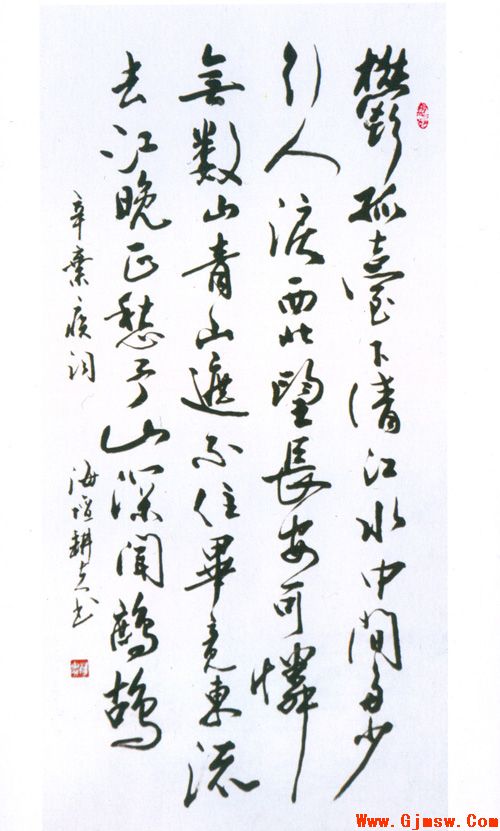 鬱孤臺下清江水中間多少
行人淚西北望長安可憐
無數山青山遮不住畢竟東流
去江晚正愁予山深聞鷓鴣
辛棄疾詞
海 耕 书
Www.Gjmsw.Com